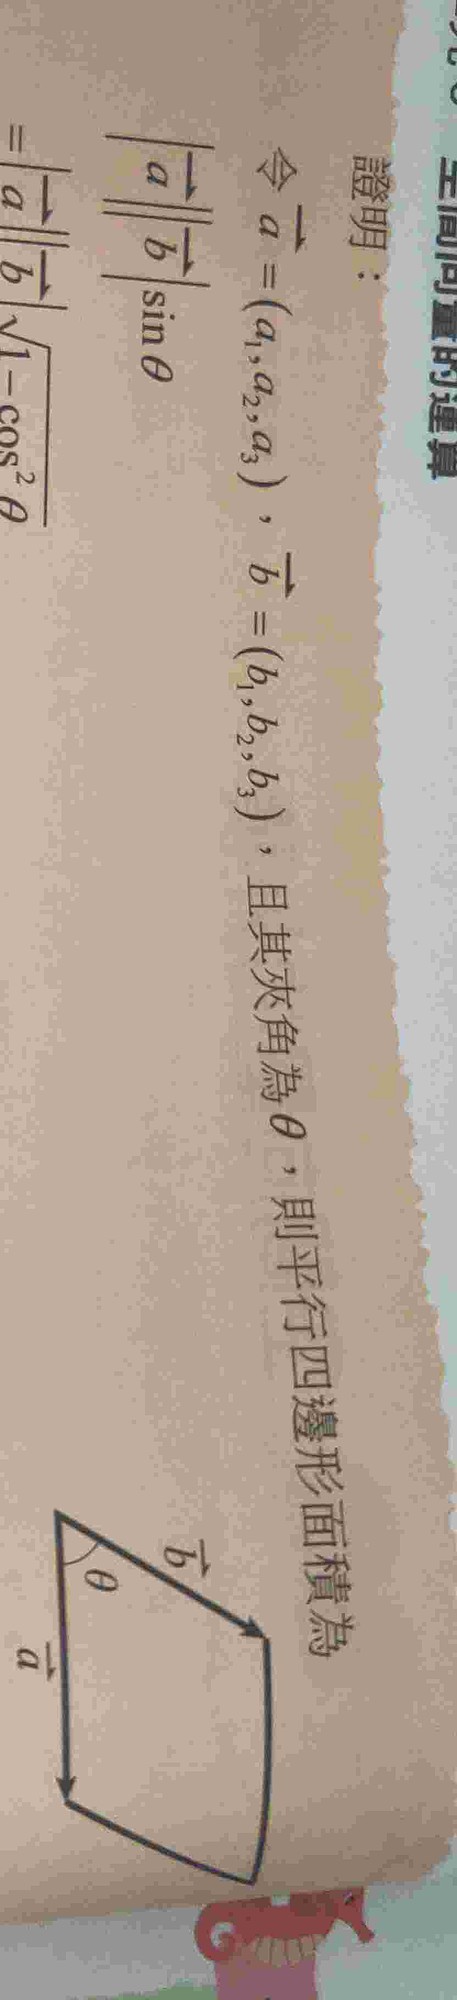 空間向量的運算
證明：
令 a⃗ =(a₁,a₂,a₃)，b⃗ =(b₁,b₂,b₃)，且其夾角為θ，則平行四邊形面積為
|a⃗||b⃗|sinθ
=|a⃗||b⃗|√(1−cos²θ)
b⃗
θ
a⃗